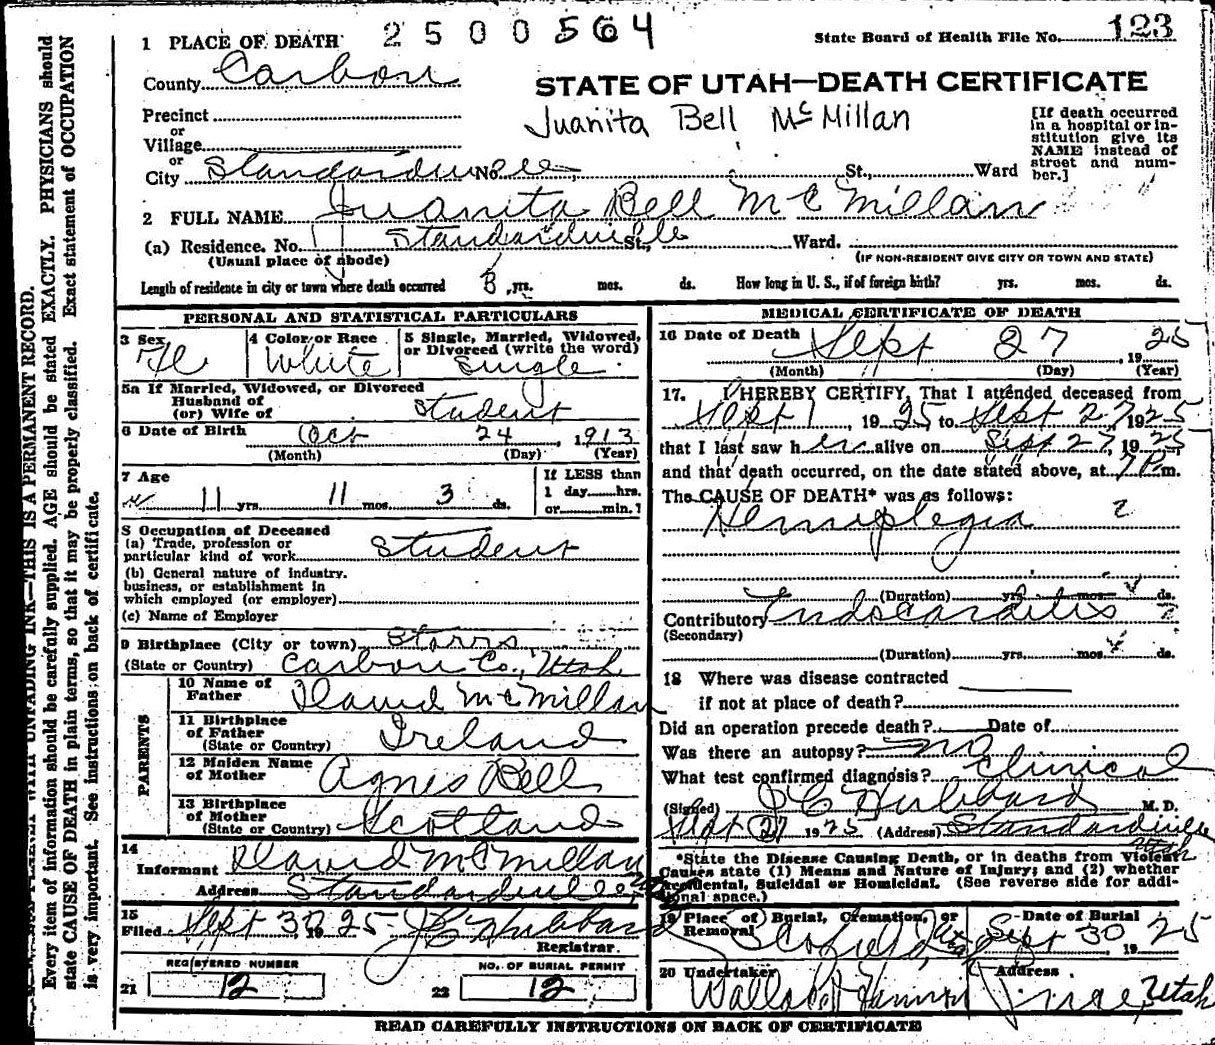 1 PLACE OF DEATH 2500564
State Board of Health File No. 123
County Carbon
STATE OF UTAH—DEATH CERTIFICATE
Precinct
or
Village
or
City Standardville No. St., Ward
Juanita Bell McMillan
[If death occurred
in a hospital or in-
stitution give its
NAME instead of
street and num-
ber.]
2 FULL NAME Juanita Bell McMillan
(a) Residence. No. Standardville St., Ward.
(Usual place of abode) (IF NON-RESIDENT GIVE CITY OR TOWN AND STATE)
Length of residence in city or town where death occurred 8 yrs. mos. ds. How long in U. S., if of foreign birth? yrs. mos. ds.
PERSONAL AND STATISTICAL PARTICULARS
3 Sex Fe
4 Color or Race White
5 Single, Married, Widowed,
or Divorced (write the word)
Single
5a If Married, Widowed, or Divorced
Husband of
(or) Wife of Student
6 Date of Birth Oct 24, 1913
(Month) (Day) (Year)
7 Age
11 yrs 11 mos 3 ds.
If LESS than
1 day hrs.
or min.?
8 Occupation of Deceased
(a) Trade, profession or
particular kind of work Student
(b) General nature of industry.
business, or establishment in
which employed (or employer)
(c) Name of Employer
9 Birthplace (City or town) Storrs
(State or Country) Carbon Co., Utah
PARENTS
10 Name of
Father David McMillan
11 Birthplace
of Father
(State or Country) Ireland
12 Maiden Name
of Mother Agnes Bell
13 Birthplace
of Mother
(State or Country) Scotland
14
Informant David McMillan
Address Standardville
15
Filed Sept 30, 1925 J C Hubbard
Registrar.
REGISTERED NUMBER
21 12
NO. OF BURIAL PERMIT
22 12
MEDICAL CERTIFICATE OF DEATH
16 Date of Death Sept 27, 1925
(Month) (Day) (Year)
17. I HEREBY CERTIFY, That I attended deceased from
Sept 1, 1925 to Sept 27 1925
that I last saw her alive on Sept 27, 1925
and that death occurred, on the date stated above, at 7 P m.
The CAUSE OF DEATH* was as follows:
Hemiplegia ?
(Duration) yrs. mos. ds.
Contributory Endocarditis ?
(Secondary)
(Duration) yrs. mos. ds.
18 Where was disease contracted
if not at place of death?
Did an operation precede death? Date of
Was there an autopsy? no
What test confirmed diagnosis? Clinical
(Signed) J C Hubbard M. D.
Sept 27 1925 (Address) Standardville
Utah
*State the Disease Causing Death, or in deaths from Violent
Causes state (1) Means and Nature of Injury; and (2) whether
Accidental, Suicidal or Homicidal. (See reverse side for addi-
tional space.)
19 Place of Burial, Cremation, or
Removal Scofield, Utah
Date of Burial
Sept 30 1925
20 Undertaker
Wallace
Address
Price, Utah
READ CAREFULLY INSTRUCTIONS ON BACK OF CERTIFICATE
INK—THIS IS A PERMANENT RECORD.
Every item of information should be carefully supplied. AGE should be stated EXACTLY. PHYSICIANS should
state CAUSE OF DEATH in plain terms, so that it may be properly classified. Exact statement of OCCUPATION
is very important. See instructions on back of certificate.